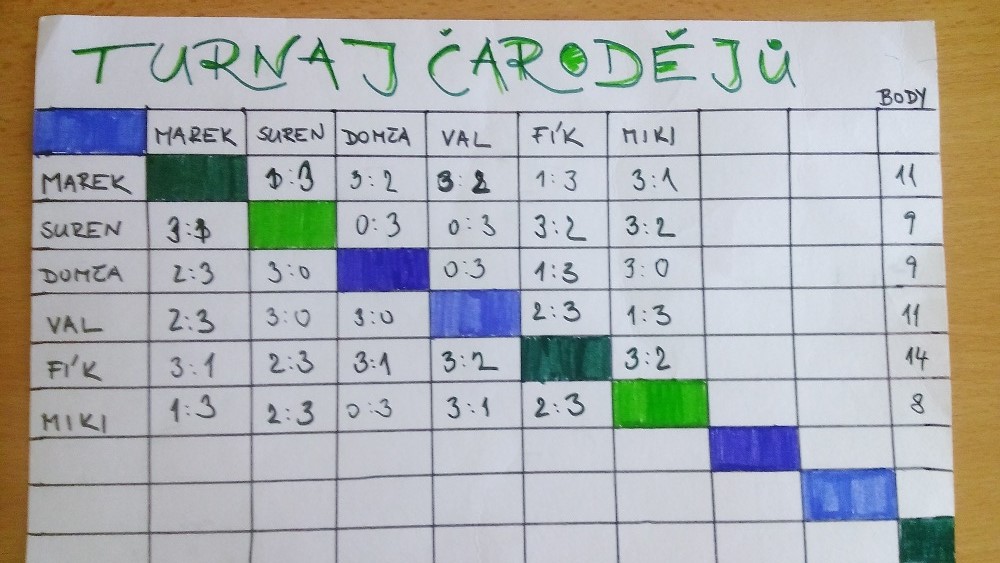 TURNAJ ČARODĚJŮ
BODY
MAREK SUREN DOMČA VAL FÍK MIKI
MAREK 3:2 1:3 3:1 11
SUREN 0:3 0:3 3:2 3:2 9
DOMČA 2:3 3:0 0:3 1:3 3:0 9
VAL 2:3 3:0 3:0 2:3 1:3 11
FÍK 3:1 2:3 3:1 3:2 3:2 14
MIKI 1:3 2:3 0:3 3:1 2:3 8